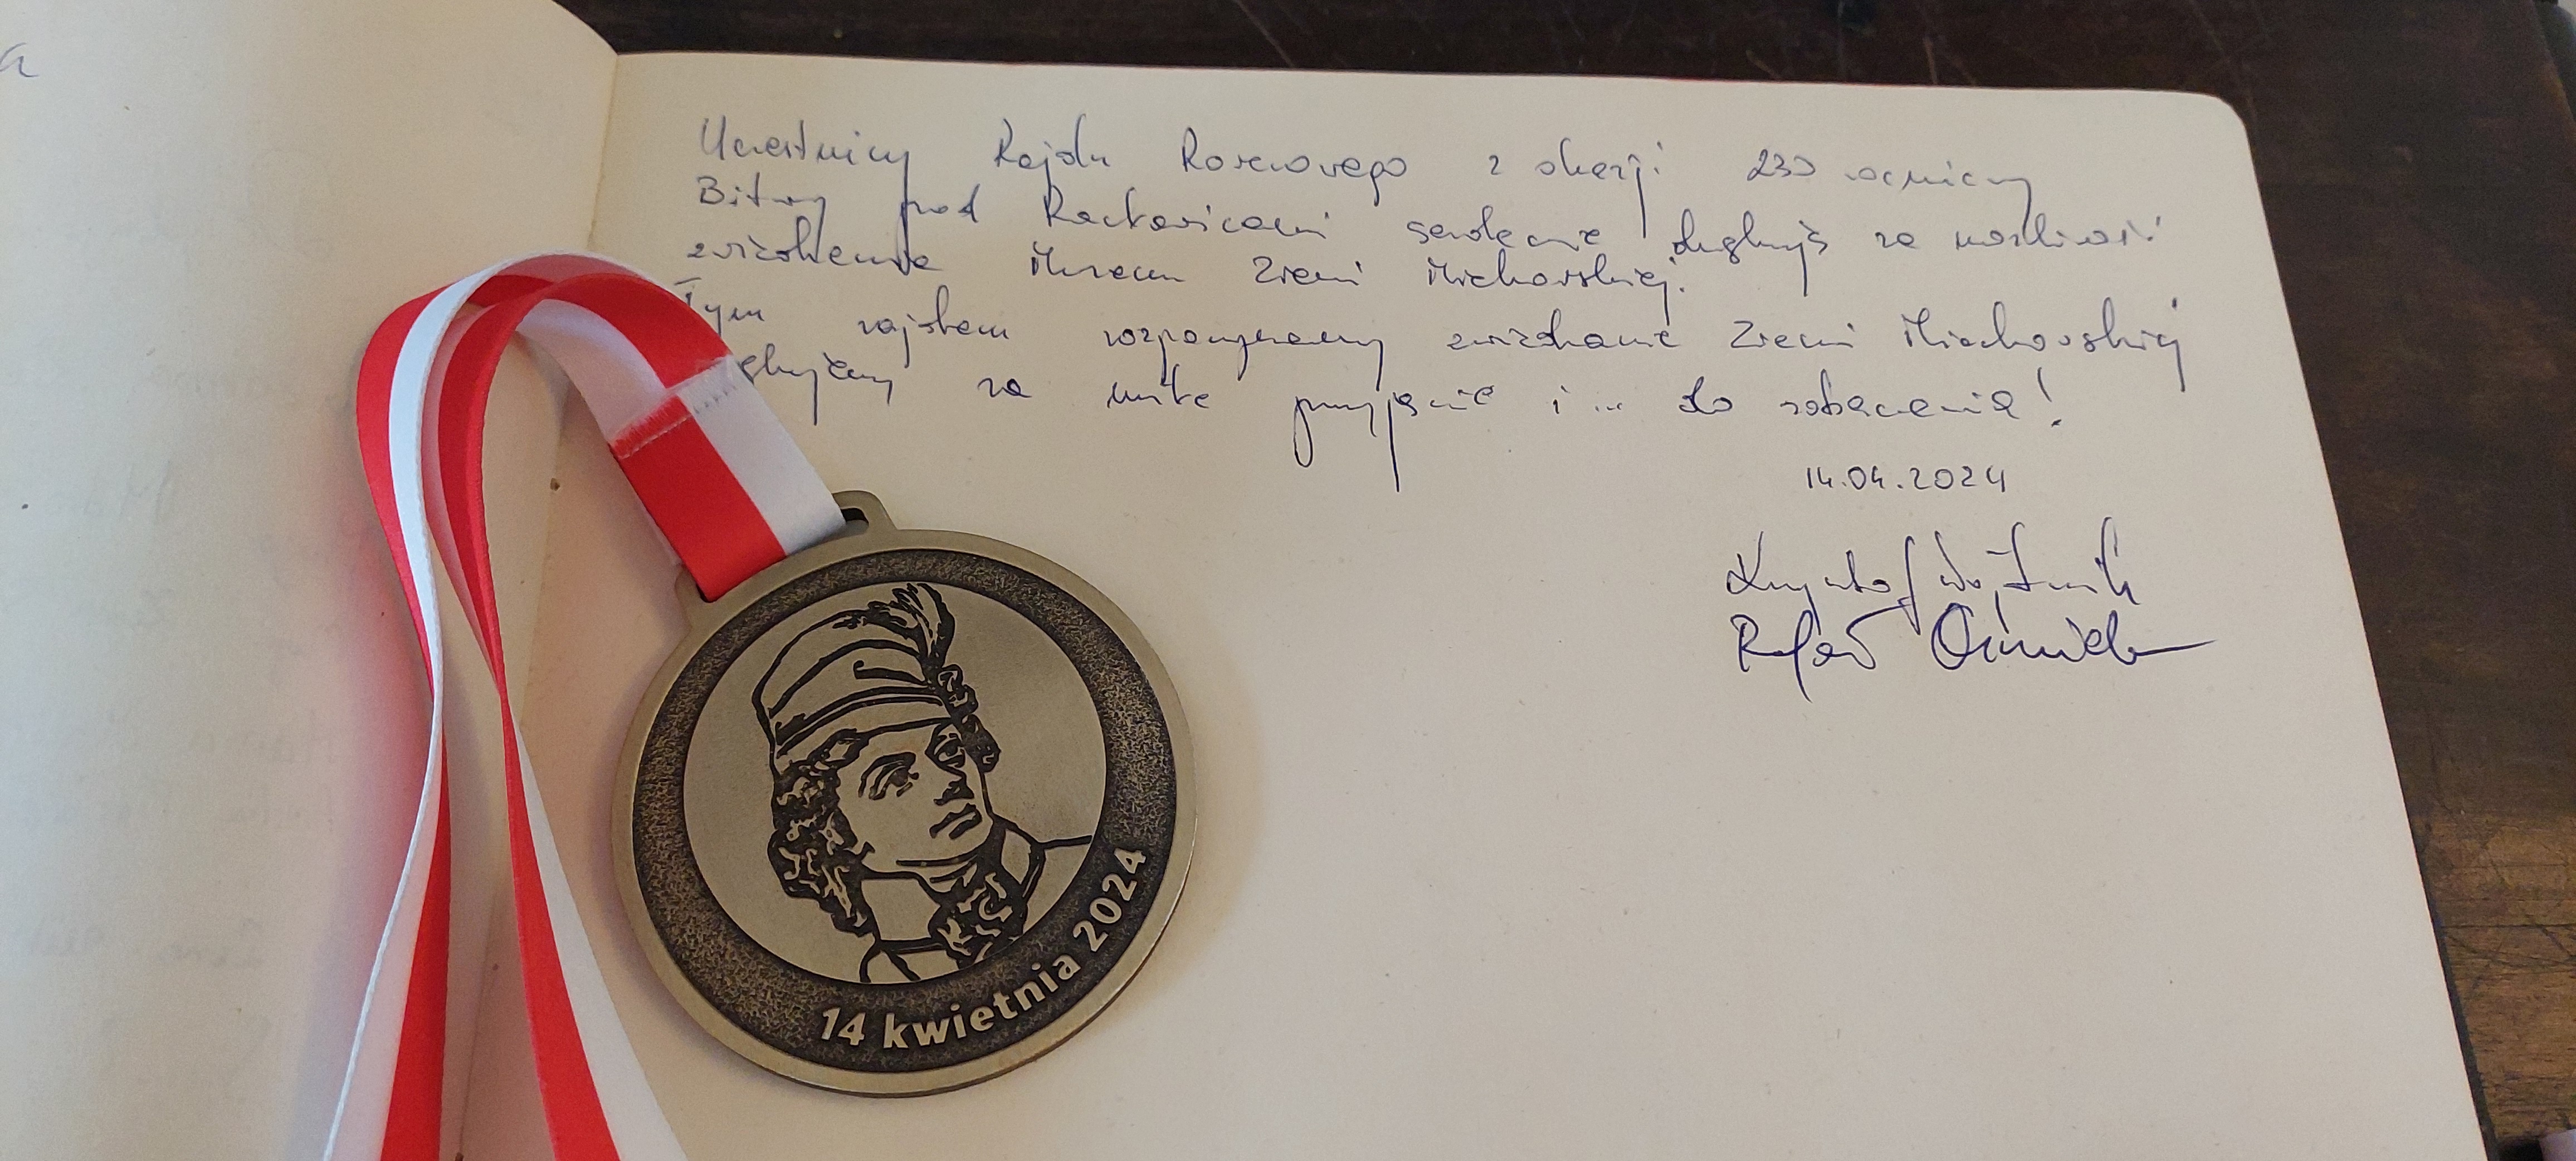 Uczestnicy Rajdu Rowerowego z okazji 230 rocznicy
Bitwy pod Racławicami serdecznie dziękują za możliwość
zwiedzenia Muzeum Ziemi Miechowskiej.
Tym rajdem rozpoczynamy zwiedzanie Ziemi Miechowskiej
za miłe przyjęcie i ... do zobaczenia!
14.04.2024
Krzysztof Woźniak
Rafał
14 kwietnia 2024